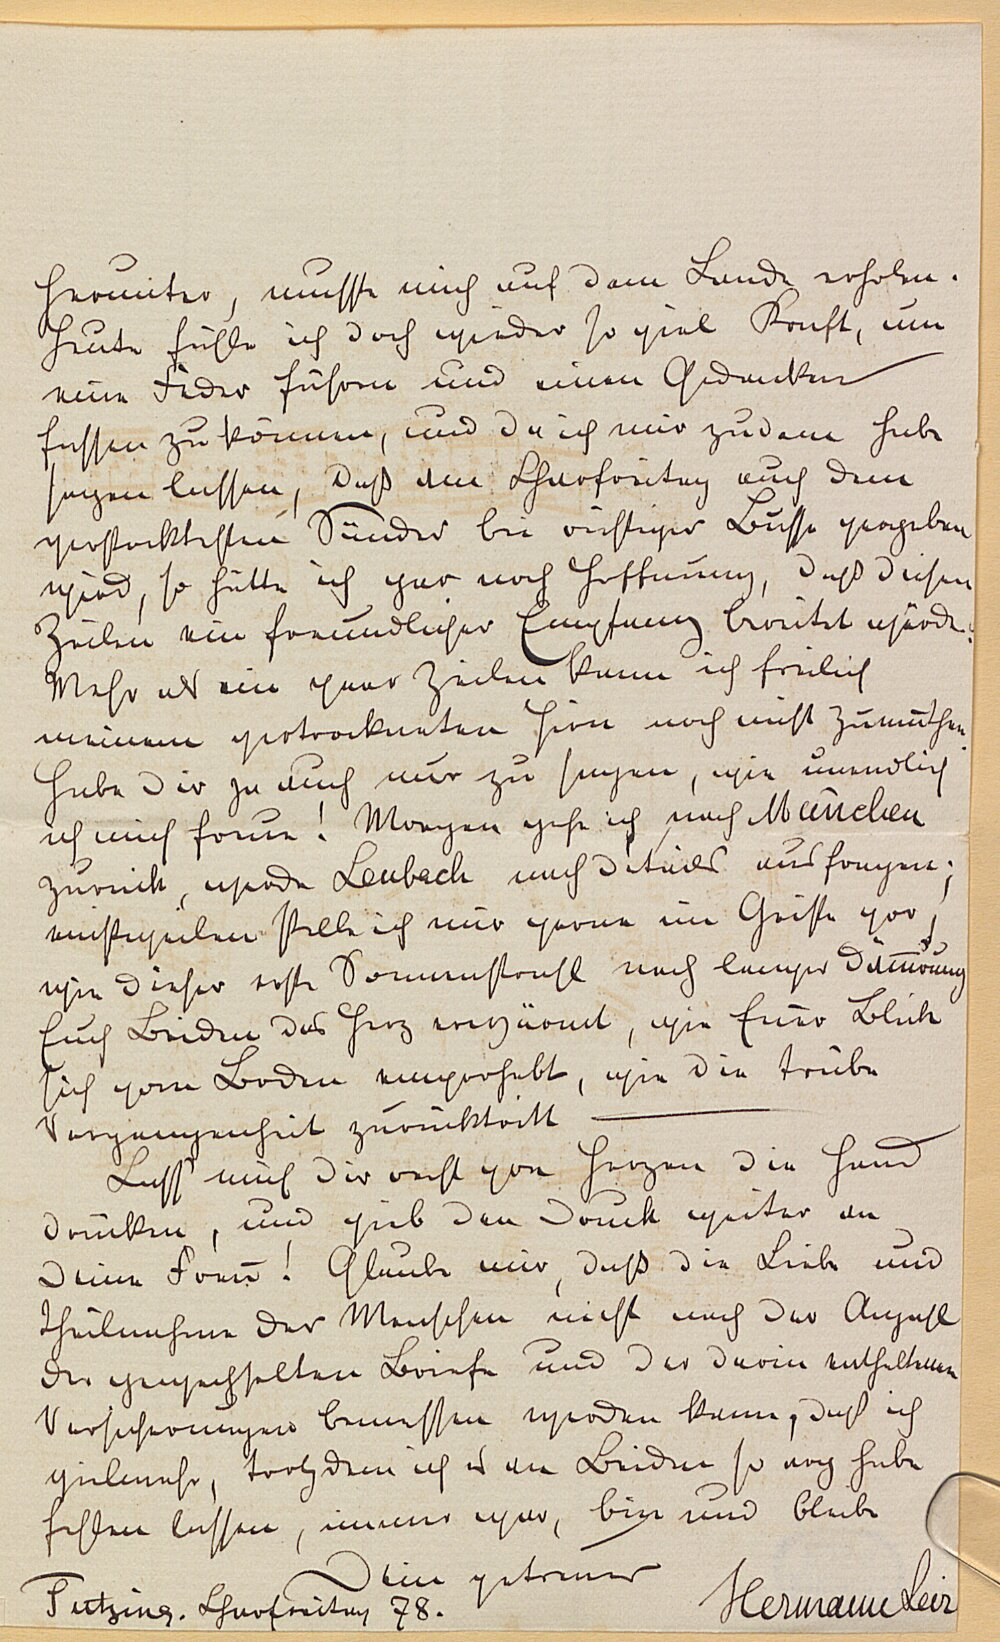 herunter, musste mich auf dem Lande erholen.
Heute fühle ich doch wieder so viel Kraft, um
eine Feder führen und einen Gedanken
fassen zu können, und da ich mir zudem habe
sagen lassen, daß am Charfreitag auch dem
verstocktesten Sünder bei richtiger Busse vergeben
wird, so hätte ich gar noch Hoffnung, daß diesen
Zeilen ein freundlicher Empfang bereitet würde.
Mehr als ein paar Zeilen kann ich freilich
meinem vertrockneten Hirn noch nicht zumuthen,
habe Dir ja auch nur zu sagen, wie unendlich
ich mich freue! Morgen gehe ich nach München
zurück, werde Lenbach nach Détails ausfragen;
einstweilen stelle ich mir gerne im Geiste vor,
wie dieser erste Sonnenstrahl nach langer Däm̅erung
Euch Beiden das Herz erwärmt, wie Euer Blick
sich vom Boden emporhebt, wie die trübe
Vergangenheit zurücktritt ———
Lass mich Dir recht von Herzen die Hand
drücken, und gieb den Druck weiter an
Deine Frau! Glaube mir, daß die Liebe und
Theilnahme der Menschen nicht nach der Anzahl
der gewechselten Briefe und der darin enthaltenen
Versicherungen bemessen werden kann, daß ich
vielmehr, trotzdem ich es an Beiden so arg habe
fehlen lassen, immer war, bin und bleibe
Dein getreuer
Tutzing. Charfreitag 78. Hermann Levi